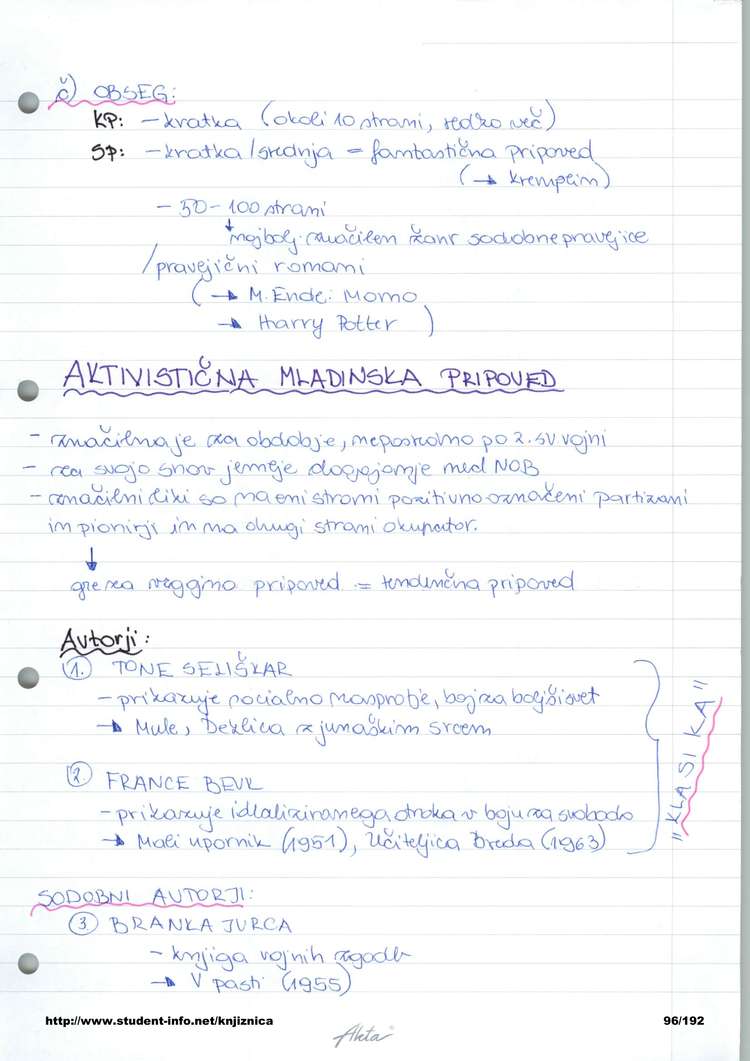 č) OBSEG:
KP: - kratka (okoli 10 strani, redko več)
SP: - kratka / srednja = fantastična pripoved
(→ Kremplin)
- 50-100 strani
↓
najbolj značilen žanr sodobne pravljice
/ pravljični romani
(→ M. Ende: Momo
→ Harry Potter )
AKTIVISTIČNA MLADINSKA PRIPOVED
- značilna je za obdobje, neposredno po 2. sv vojni
- za svojo snov jemlje dogajanje med NOB
- značilni liki so na eni strani pozitivno označeni partizani
in pionirji in na drugi strani okupator.
↓
gre za vzgojno pripoved = tendenčna pripoved
Avtorji:
1. TONE SELIŠKAR
- prikazuje socialno nasprotje, boj za boljši svet
→ Mule, Deklica z junaškim srcem
2. FRANCE BEVK
- prikazuje idealiziranega otroka v boju za svobodo
→ Mali upornik (1951), Učiteljica Breda (1963)
"KLASIKA"
SODOBNI AVTORJI:
3 BRANKA JURCA
- knjiga vojnih zgodb
→ V pasti (1955)
http://www.student-info.net/knjiznica 96/192
Akta